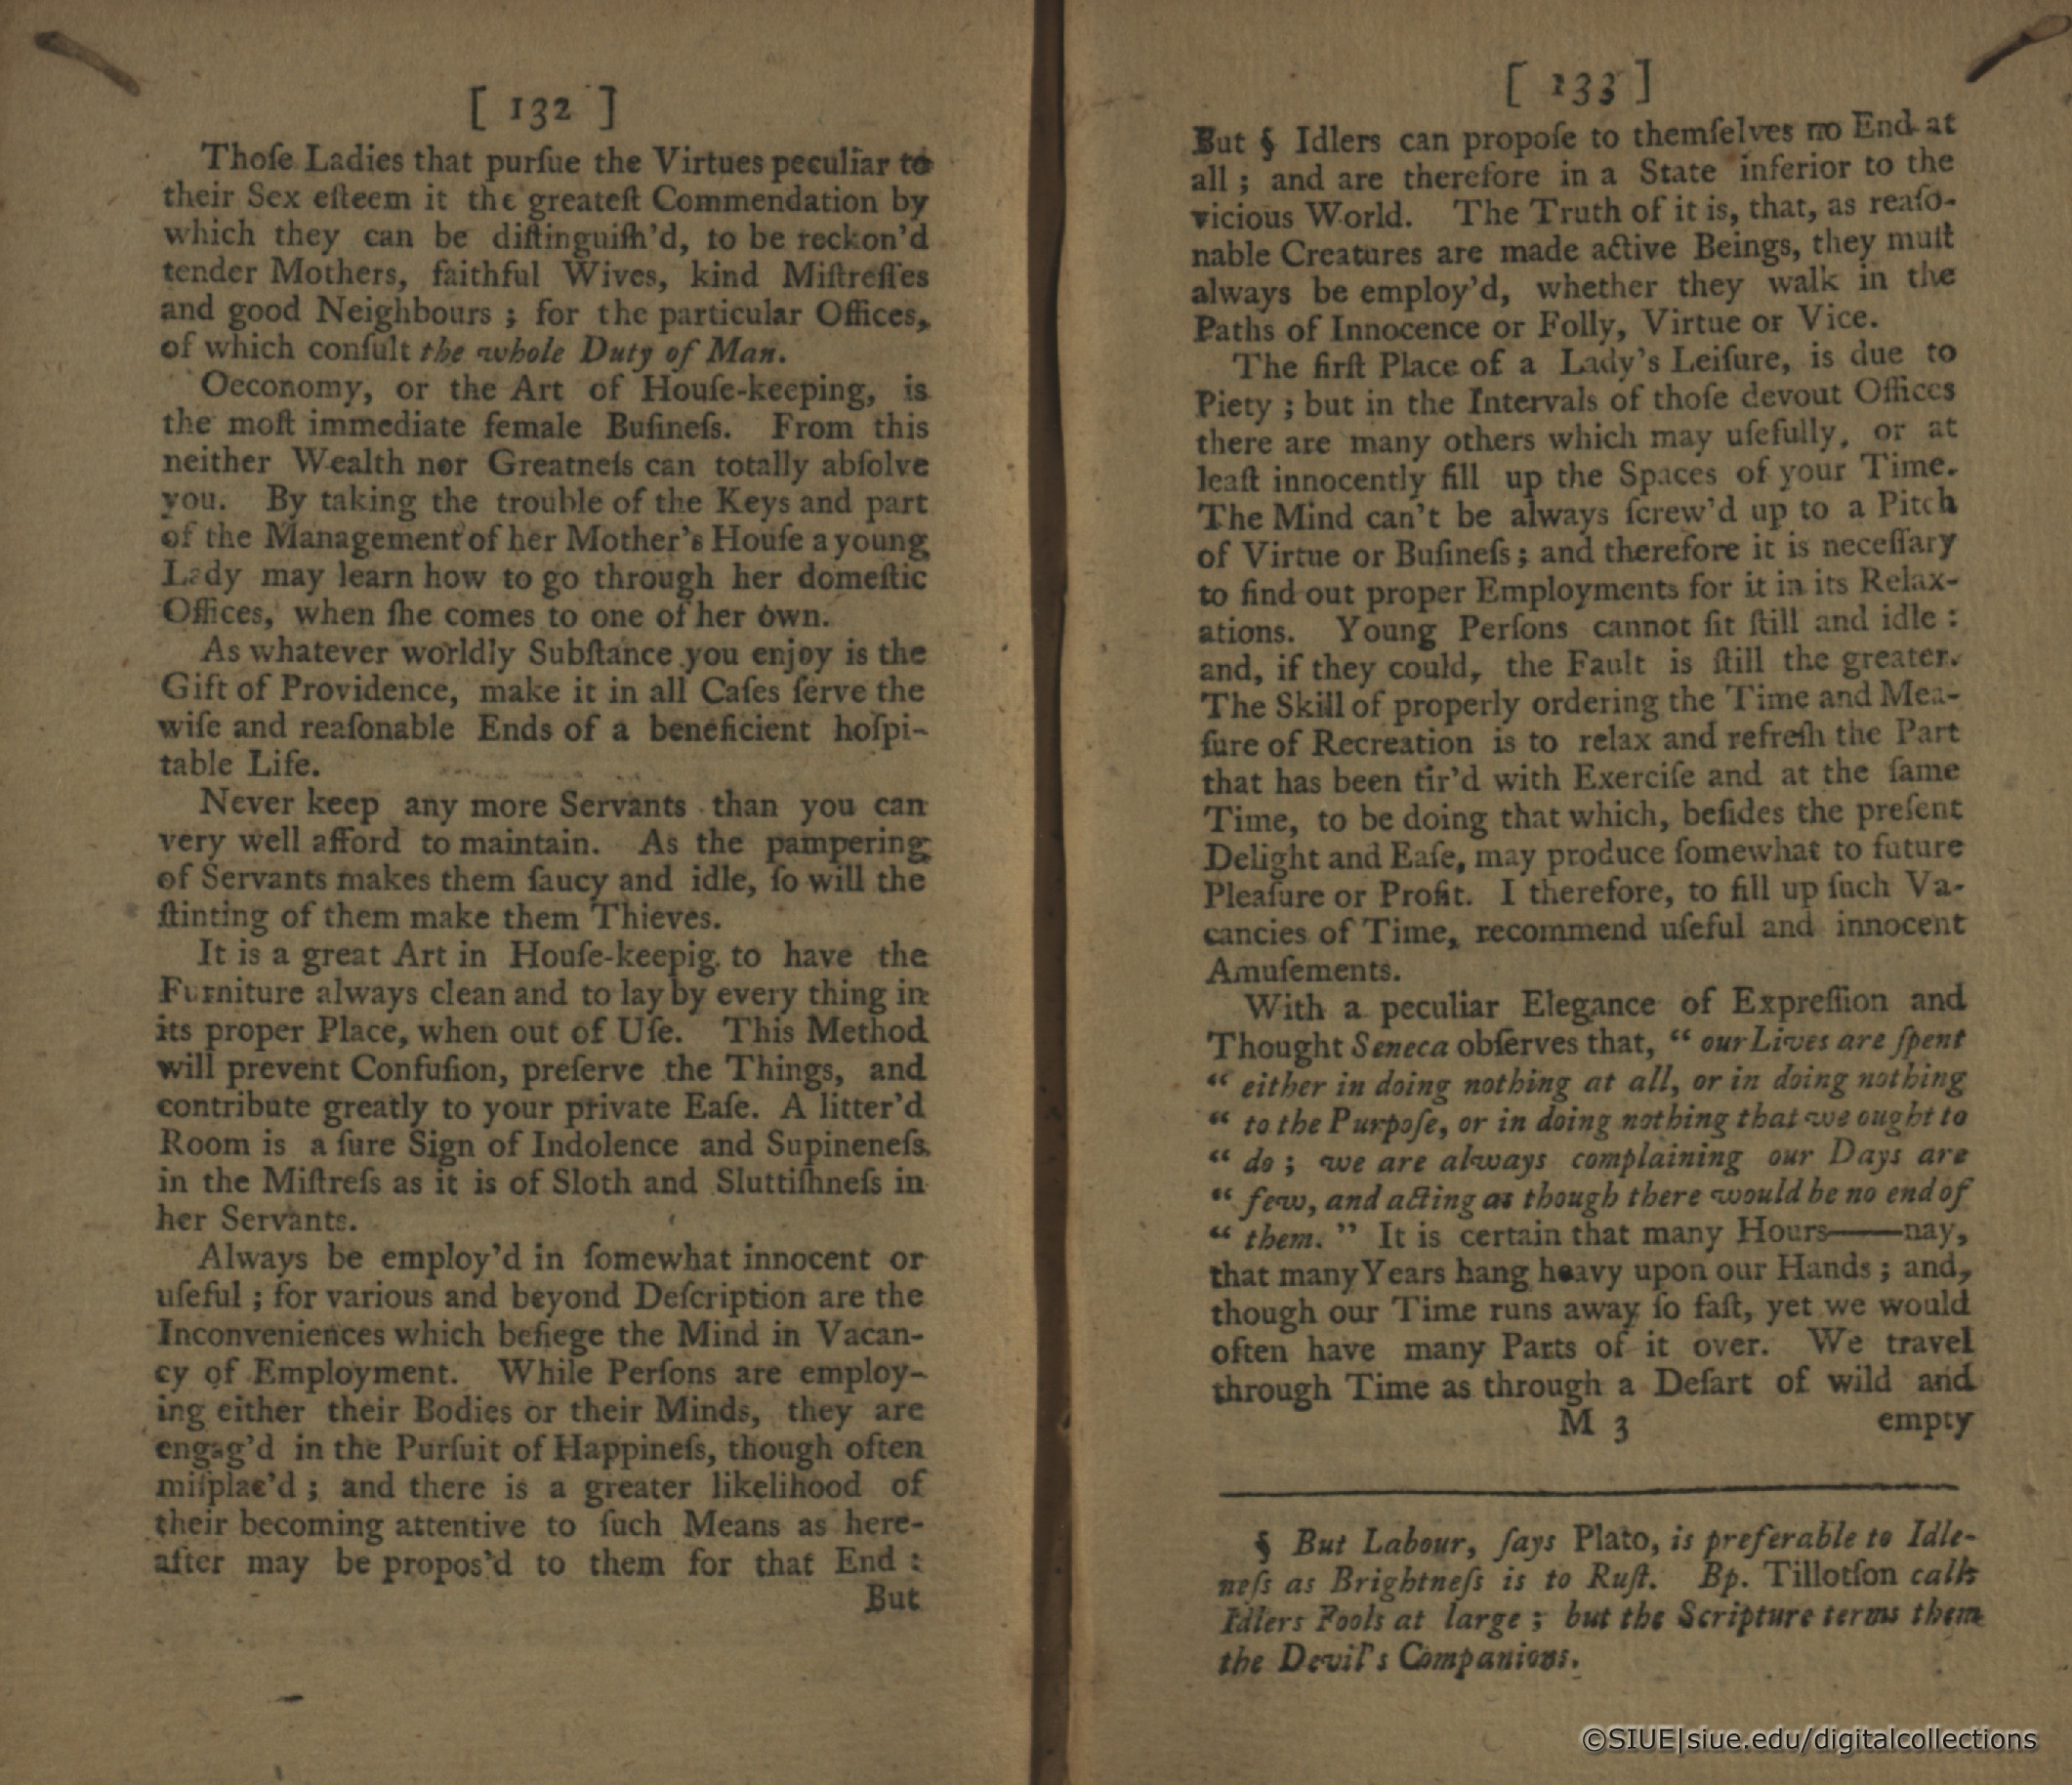 [ 132 ]
Thoſe Ladies that purſue the Virtues peculiar to
their Sex eſteem it the greateſt Commendation by
which they can be diſtinguiſh'd, to be reckon'd
tender Mothers, faithful Wives, kind Miſtreſſes
and good Neighbours ; for the particular Offices,
of which conſult the whole Duty of Man.
Oeconomy, or the Art of Houſe-keeping, is
the moſt immediate female Buſineſs. From this
neither Wealth nor Greatneſs can totally abſolve
you. By taking the trouble of the Keys and part
of the Management of her Mother's Houſe a young
Lady may learn how to go through her domeſtic
Offices, when ſhe comes to one of her own.
As whatever worldly Subſtance you enjoy is the
Gift of Providence, make it in all Caſes ſerve the
wiſe and reaſonable Ends of a beneficient hoſpi-
table Life.
Never keep any more Servants than you can
very well afford to maintain. As the pampering
of Servants makes them ſaucy and idle, ſo will the
ſtinting of them make them Thieves.
It is a great Art in Houſe-keepig to have the
Furniture always clean and to lay by every thing in
its proper Place, when out of Uſe. This Method
will prevent Confuſion, preſerve the Things, and
contribute greatly to your private Eaſe. A litter'd
Room is a ſure Sign of Indolence and Supineneſs
in the Miſtreſs as it is of Sloth and Sluttiſhneſs in
her Servants.
Always be employ'd in ſomewhat innocent or
uſeful ; for various and beyond Deſcription are the
Inconveniences which beſiege the Mind in Vacan-
cy of Employment. While Perſons are employ-
ing either their Bodies or their Minds, they are
engag'd in the Purſuit of Happineſs, though often
miſplac'd ; and there is a greater likelihood of
their becoming attentive to ſuch Means as here-
after may be propos'd to them for that End :
But
[ 133 ]
But § Idlers can propoſe to themſelves no End at
all ; and are therefore in a State inferior to the
vicious World. The Truth of it is, that, as reaſo-
nable Creatures are made active Beings, they muſt
always be employ'd, whether they walk in the
Paths of Innocence or Folly, Virtue or Vice.
The firſt Place of a Lady's Leiſure, is due to
Piety ; but in the Intervals of thoſe devout Offices
there are many others which may uſefully, or at
leaſt innocently fill up the Spaces of your Time.
The Mind can't be always ſcrew'd up to a Pitch
of Virtue or Buſineſs ; and therefore it is neceſſary
to find out proper Employments for it in its Relax-
ations. Young Perſons cannot ſit ſtill and idle :
and, if they could, the Fault is ſtill the greater.
The Skill of properly ordering the Time and Mea-
ſure of Recreation is to relax and refreſh the Part
that has been tir'd with Exerciſe and at the ſame
Time, to be doing that which, beſides the preſent
Delight and Eaſe, may produce ſomewhat to future
Pleaſure or Profit. I therefore, to fill up ſuch Va-
cancies of Time, recommend uſeful and innocent
Amuſements.
With a peculiar Elegance of Expreſſion and
Thought Seneca obſerves that, “ our Lives are ſpent
“ either in doing nothing at all, or in doing nothing
“ to the Purpoſe, or in doing nothing that we ought to
“ do ; we are always complaining our Days are
“ few, and acting as though there would be no end of
“ them. ” It is certain that many Hours——nay,
that many Years hang heavy upon our Hands ; and,
though our Time runs away ſo faſt, yet we would
often have many Parts of it over. We travel
through Time as through a Deſart of wild and
M 3 empty
§ But Labour, ſays Plato, is preferable to Idle-
neſs as Brightneſs is to Ruſt. Bp. Tillotſon calls
Idlers Fools at large ; but the Scripture terms them
the Devil's Companions.
©SIUE|siue.edu/digitalcollections